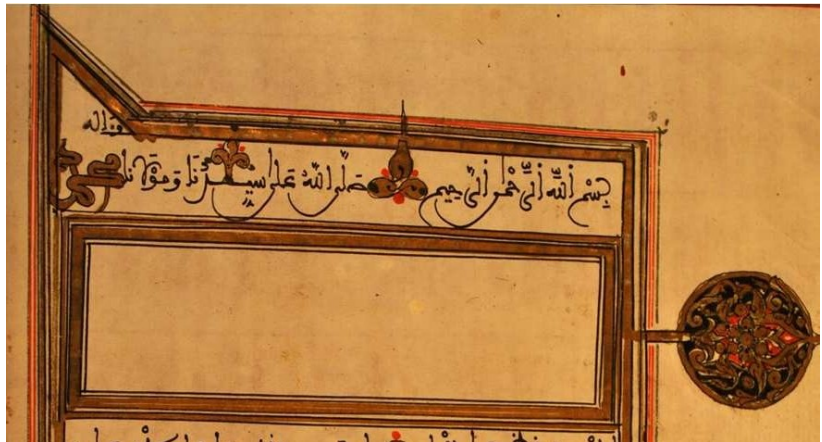 بِسْمِ اللَّهِ الرَّحْمٰنِ الرَّحِيمِ صَلَّى اللَّهُ عَلَى سَيِّدِنَا وَمَوْلَانَا محمد وءاله